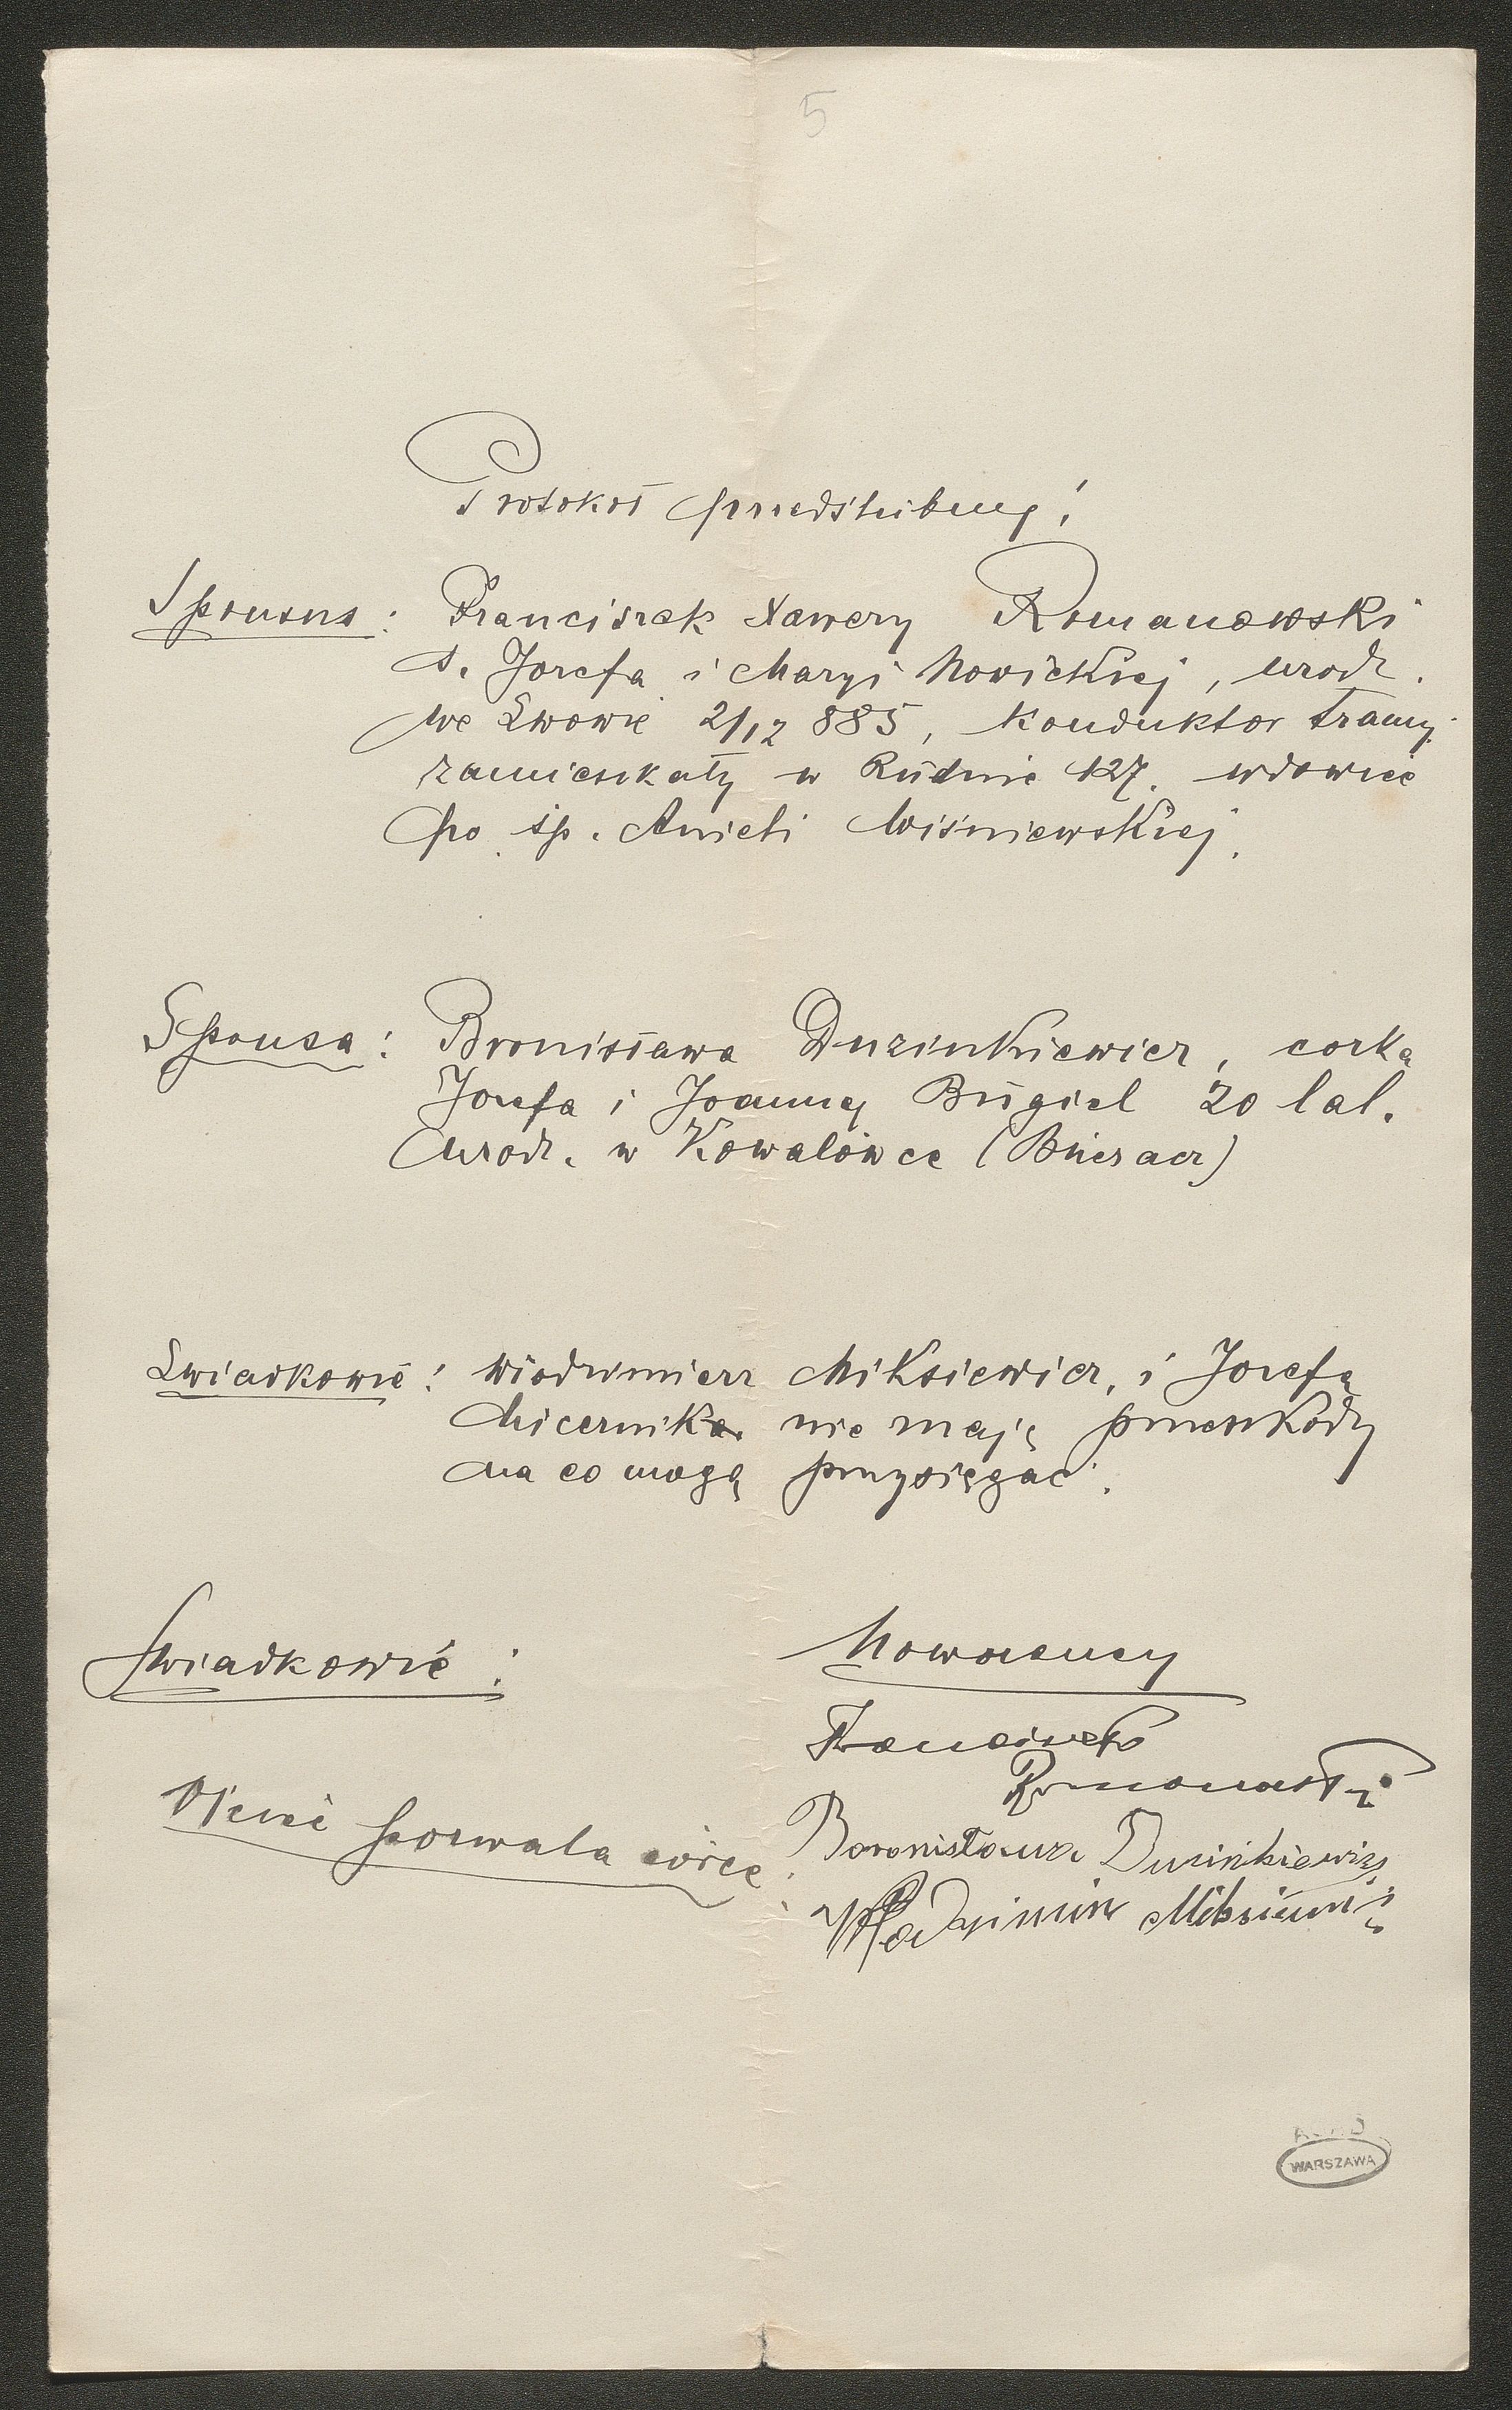 5
Protokół przedślubny!
Sponsus: Franciszek Xawery Romanowski
s. Józefa i Maryi Nowickiej, urodz.
we Lwowie 2/12 885, konduktor tramw.
zamieszkały w Rudnie 127. wdowiec
po śp. Anieli Wiśniewskiej.
Sponsa: Bronisława Duzinkiewicz, corka
Józefa i Joanny Bugiel 20 lat.
urodz. w Kowalówce (Buczacz)
Swiadkowie: Włodzimierz Miksiewicz, i Józefa
nie mają przeszkody
na co mogą przysięgać.
Swiadkowie:
Nowożeńcy
Franciszek
Romanowski
Ojciec pozwala córce
Boronisława Duzinkiewicz
Włodzimierz Miksiewicz
WARSZAWA